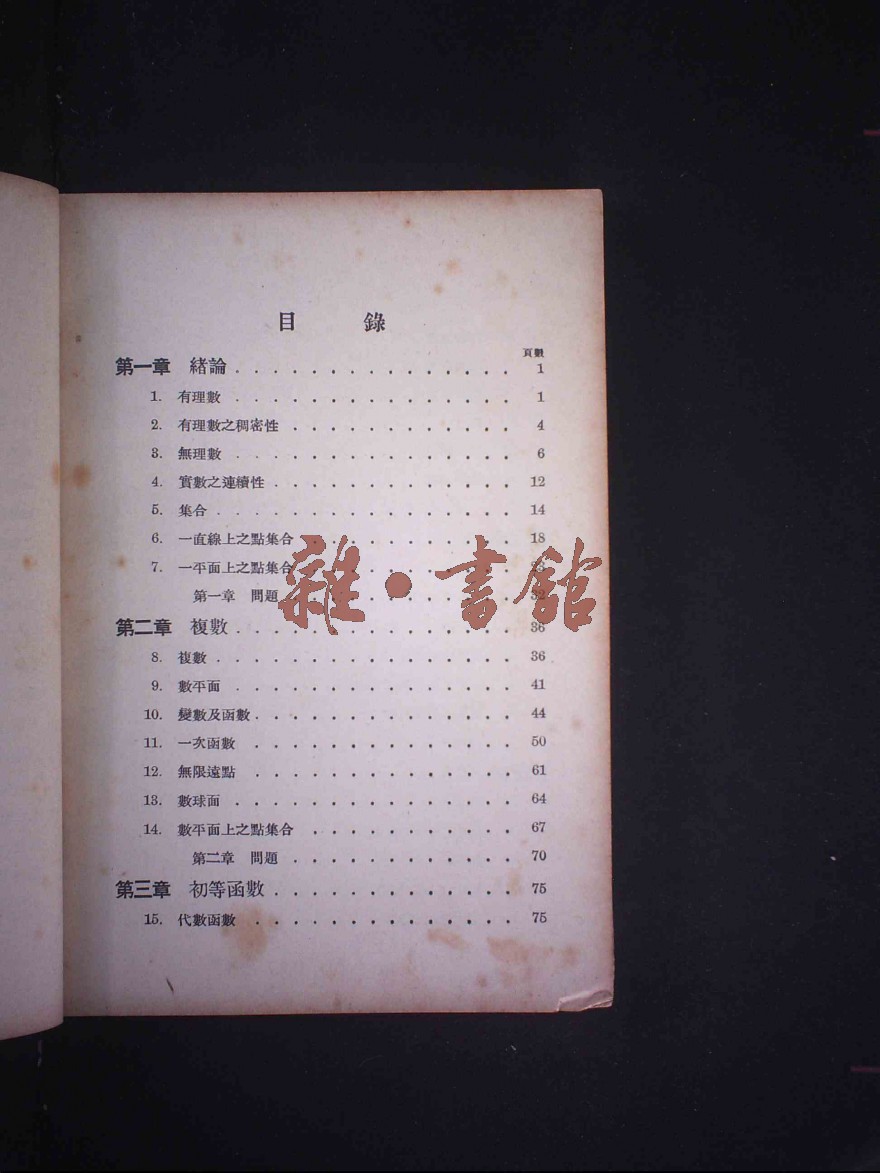 目 錄
頁數
第一章 緒論 . . . . . . . . . . . . . . . 1
1. 有理數 . . . . . . . . . . . . . . 1
2. 有理數之稠密性 . . . . . . . . . . . . 4
3. 無理數 . . . . . . . . . . . . . . . 6
4. 實數之連續性 . . . . . . . . . . . . . 12
5. 集合 . . . . . . . . . . . . . . . . 14
6. 一直線上之點集合 . . . . . . . . . . . 18
7. 一平面上之點集合 . . . . . . . . . . . 23
第一章 問題 . . . . . . . . . . . . 32
雜·書館
第二章 複數 . . . . . . . . . . . . . . . 36
8. 複數 . . . . . . . . . . . . . . . . 36
9. 數平面 . . . . . . . . . . . . . . . 41
10. 變數及函數 . . . . . . . . . . . . . . 44
11. 一次函數 . . . . . . . . . . . . . . 50
12. 無限遠點 . . . . . . . . . . . . . . 61
13. 數球面 . . . . . . . . . . . . . . . 64
14. 數平面上之點集合 . . . . . . . . . . . 67
第二章 問題 . . . . . . . . . . . . 70
第三章 初等函數 . . . . . . . . . . . . . 75
15. 代數函數 . . . . . . . . . . . . . . 75